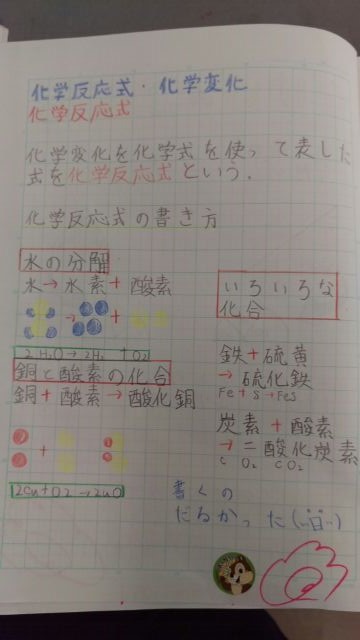 化学反応式・化学変化
化学反応式
化学変化を化学式を使って表した
式を化学反応式という.
化学反応式の書き方
水の分解
水→水素+酸素
2H₂O→2H₂+O₂
銅と酸素の化合
銅+酸素→酸化銅
2Cu+O2→2uO
いろいろな
化合
鉄+硫黄
→硫化鉄
Fe+S→FeS
炭素+酸素
→二酸化炭素
C O₂ CO₂
書くの
だるかった